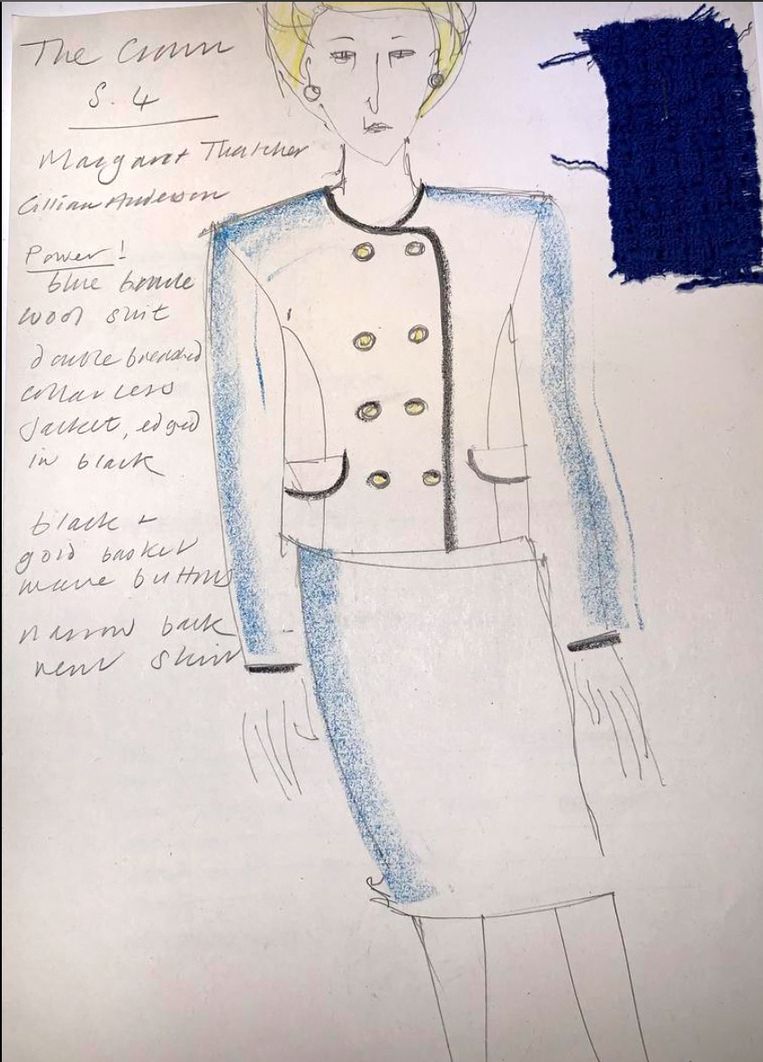 The Crown
S. 4
Margaret Thatcher
Gillian Anderson
Power!
blue boucle
wool suit
double breasted
collarless
jacket, edged
in black
black +
gold basket
weave buttons
narrow back
vent skirt